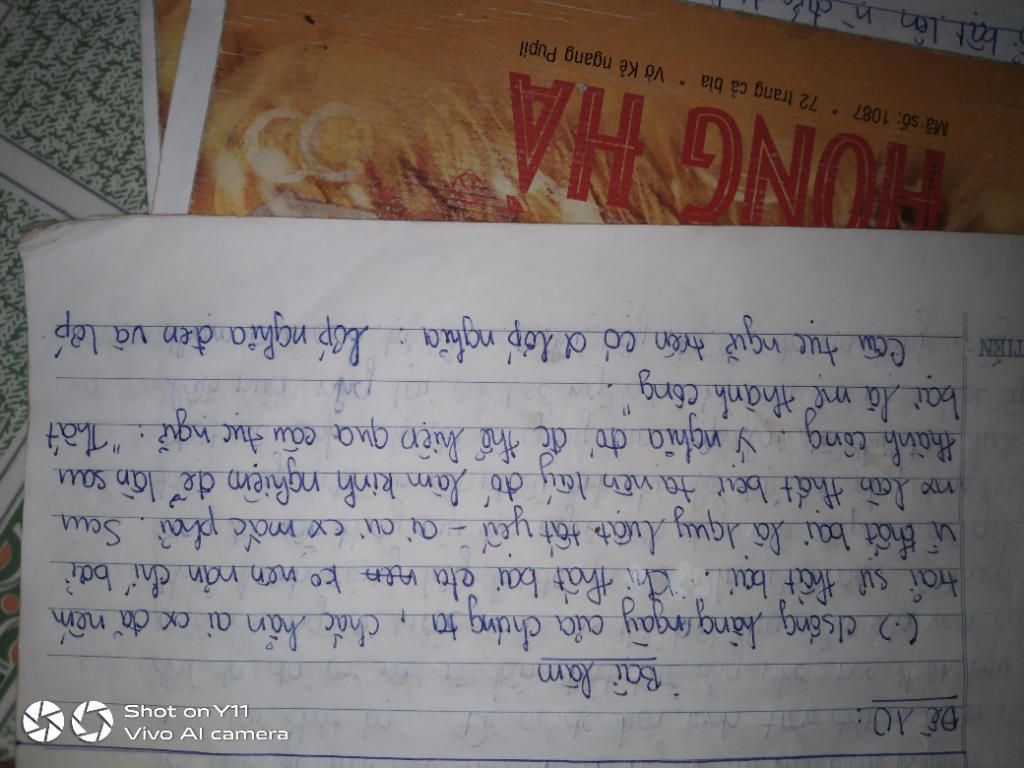 Đề 10:
Bài làm
(.) c/sống hàng ngày của chúng ta, chắc hẳn ai cx đã nếm
trải sự thất bại. Khi thất bại cta ko nên nản chí bởi
vì thất bại là quy luật tất yếu - ai ai cx mắc phải. Sau
mx lần thất bại ta nên lấy đó làm kinh nghiệm để lần sau
thành công. Ý nghĩa đó đc thể hiện qua câu tục ngữ: "Thất
bại là mẹ thành công".
Câu tục ngữ trên có 2 lớp nghĩa: Lớp nghĩa đen và lớp
TIÊN
HONG HA
Mã số: 1087 * 72 trang cả bìa * Vở Kẻ ngang Pupil
bật lên
Shot on Y11
Vivo AI camera